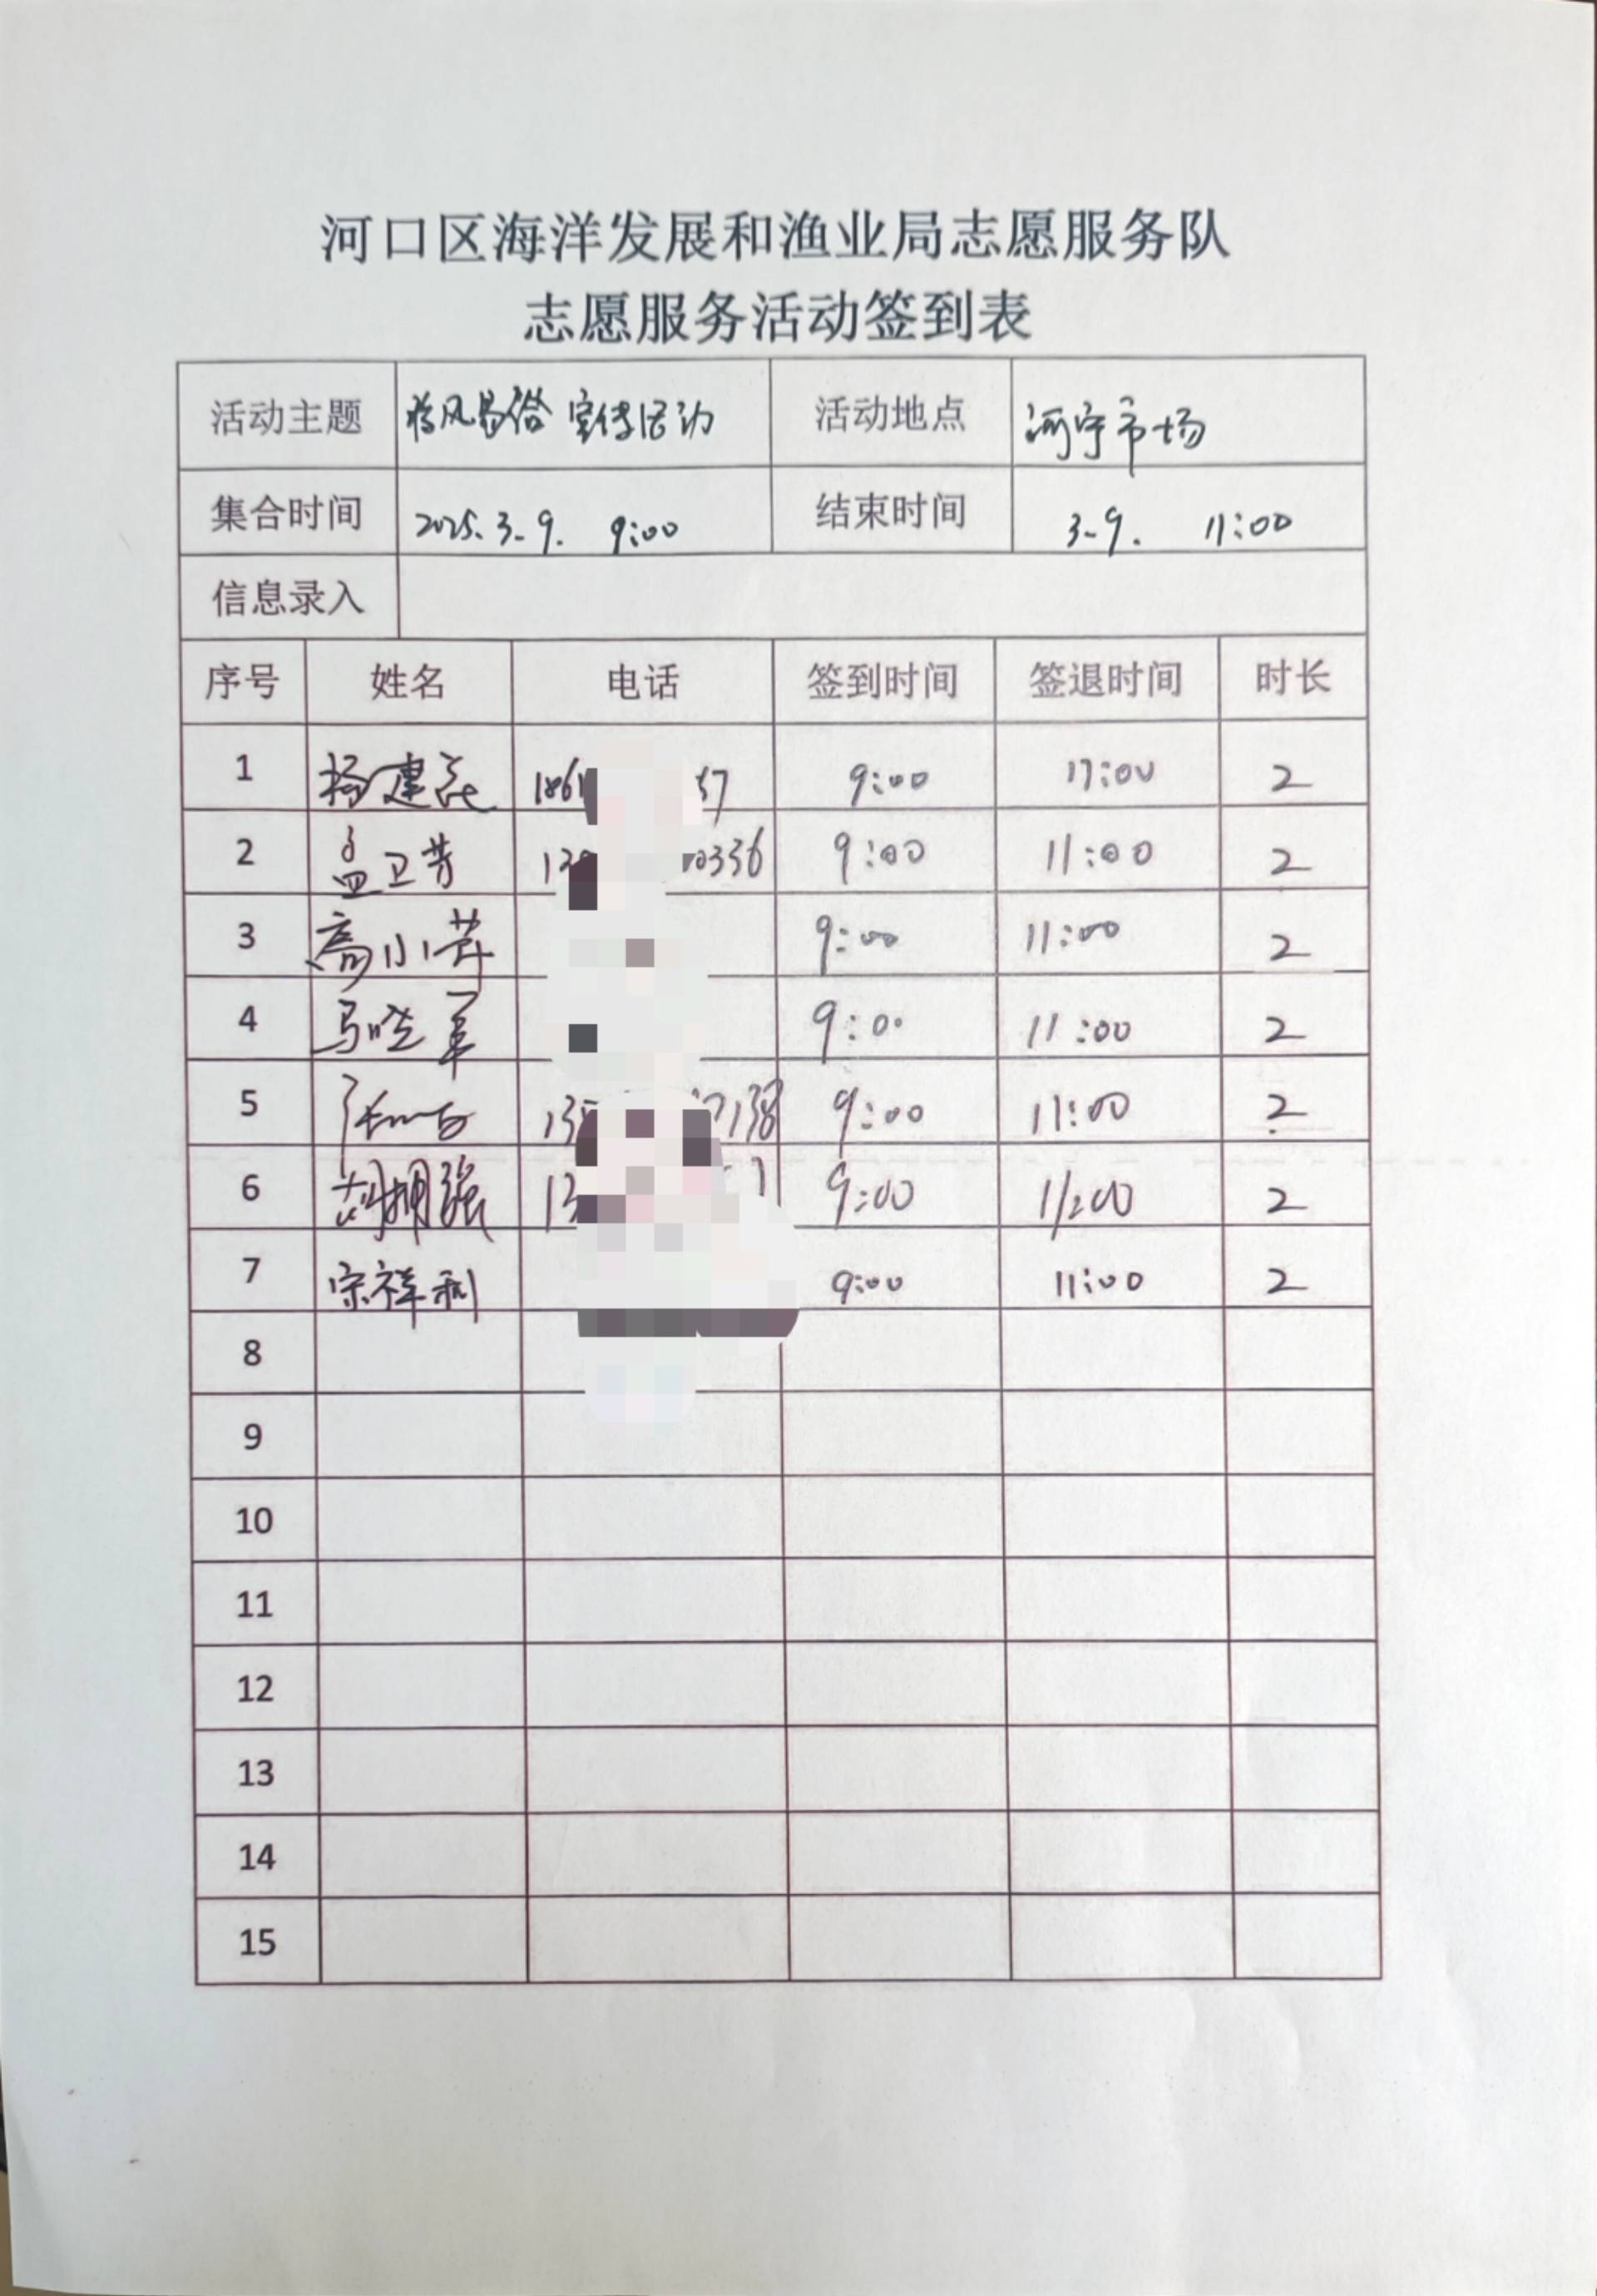 河口区海洋发展和渔业局志愿服务队
志愿服务活动签到表
活动主题 移风易俗宣传活动 活动地点 河宁市场
集合时间 2025.3-9. 9:00 结束时间 3-9. 11:00
信息录入
序号 姓名 电话 签到时间 签退时间 时长
1 杨建 9:00 11:00 2
2 孟卫芳 0336 9:00 11:00 2
3 高小芹 9:00 11:00 2
4 马晓军 9:00 11:00 2
5 9:00 11:00 2
6 胡拥强 9:00 11:00 2
7 宗祥利 9:00 11:00 2
8
9
10
11
12
13
14
15